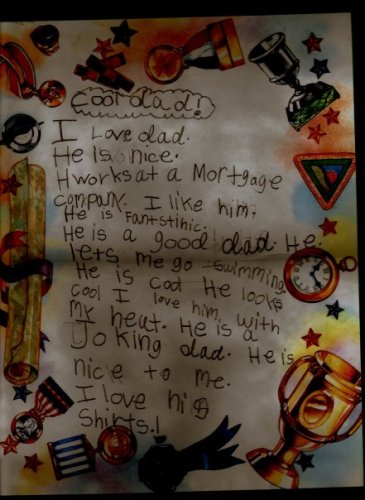 Cool dad!
I Love dad.
He is nice.
H works at a Mortgage
company. I like him?
He is Fantstihic.
He is a good dad. He
lets me go swimming.
He is cool He looks
cool I love him, with
my heat. He is a
Joking dad. He is
nice to me.
I love his
Shirts.!